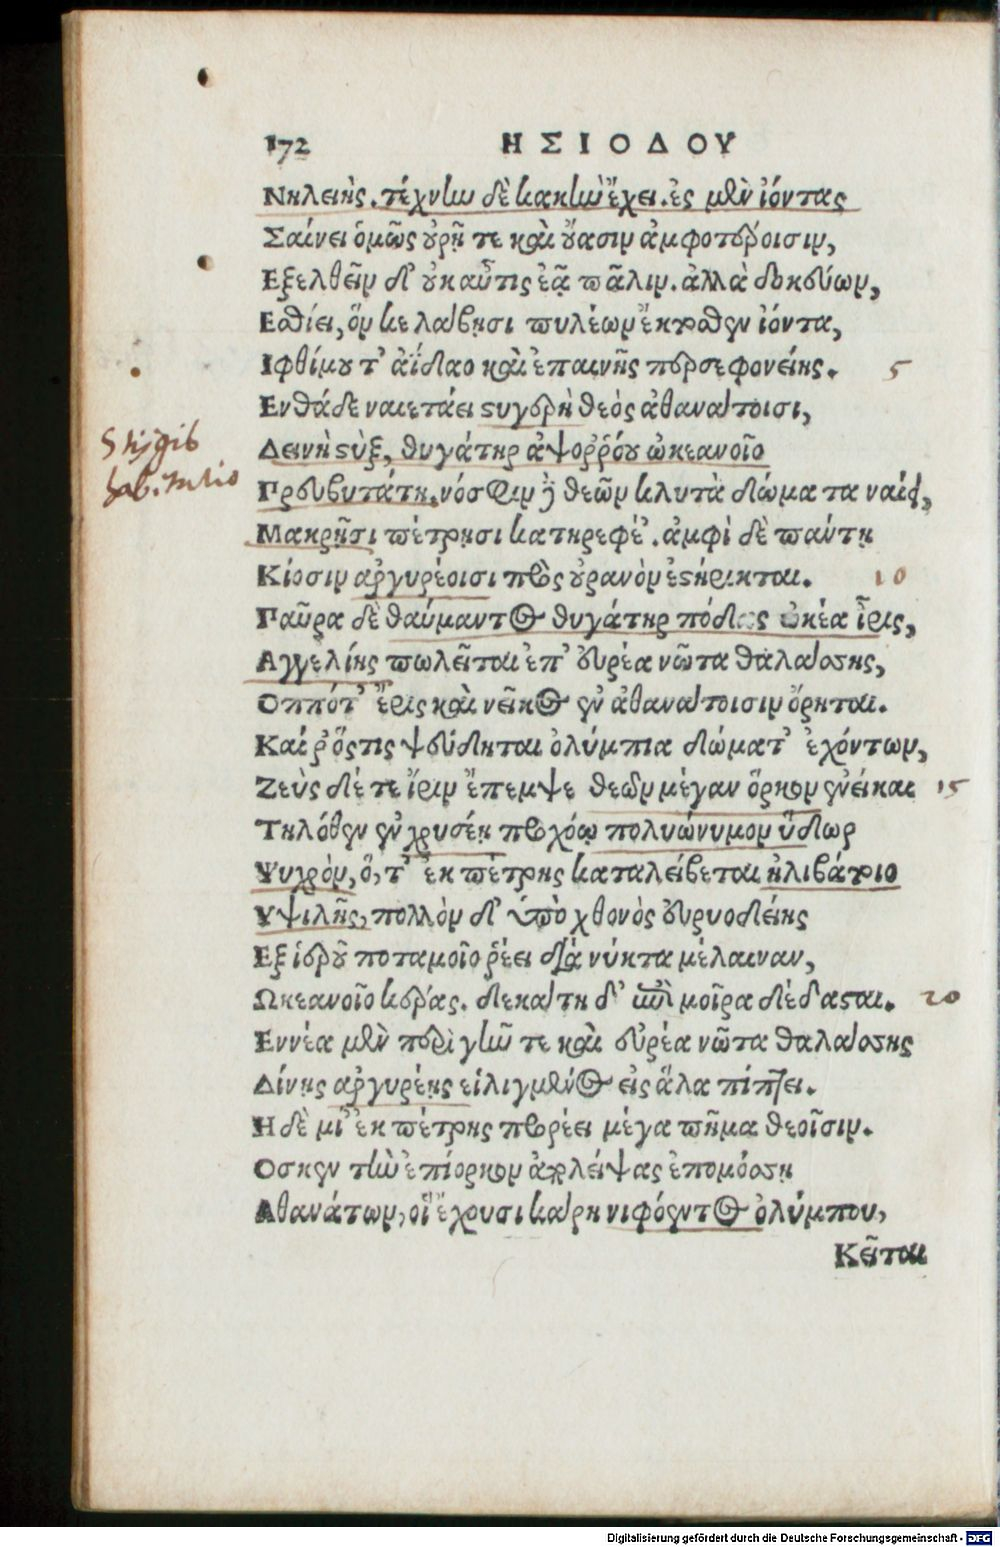 172 ΗΣΙΟΔΟΥ
Νηλειὴς. τέχνην δὲ κακὴν ἔχει. ἐς μὲν ἰόντας
Σαίνει ὁμῶς οὐρῇ τε καὶ οὔασιν ἀμφοτέροισιν,
Εξελθεῖν δ' οὐκ αὖτις ἐᾷ πᾶλιν. ἀλλὰ δοκεύων,
Εσθίει, ὅν κε λάβησι πυλέων ἔκτοσθεν ἰόντα,
Ιφθίμου τ' ἀΐδαο καὶ ἐπαινῆς περσεφονείης. 5
Ενθάδε ναιετάει στυγερὴ θεὸς ἀθανάτοισι,
Δεινὴ στὺξ, θυγάτηρ ἀψορῤῥόου ὠκεανοῖο
Stygis
Πρεσβυτάτη. νόσφιν δὲ θεῶν κλυτὰ δώματα ναίει,
Μακρῇσι πέτρησι κατηρεφέ'. ἀμφὶ δὲ πάντη
Κίοσιν ἀργυρέοισι πρὸς οὐρανὸν ἐστήρικται. 10
Παῦρα δὲ θαύμαντος θυγάτηρ πόδας ὠκέα ἶρις,
Αγγελίης πωλεῖται ἐπ' εὐρέα νῶτα θαλάσσης,
Οππότ' ἔρις καὶ νεῖκος ἐν ἀθανάτοισιν ὄρηται.
Καί ῥ' ὅστις ψεύδηται ὀλύμπια δώματ' ἐχόντων,
Ζεὺς δέ τε ἴριν ἔπεμψε θεῶν μέγαν ὅρκον ἐνεῖκαι 15
Τηλόθεν ἐν χρυσέῃ προχόῳ πολυώνυμον ὕδωρ
Ψυχρὸν, ὅ, τ' ἐκ πέτρης καταλείβεται ἠλιβάτοιο
Υψιλῆς, πολλὸν δ' ὑπὸ χθονὸς εὐρυοδείης
Εξ ἱεροῦ ποταμοῖο ῥέει διὰ νύκτα μέλαιναν,
Ωκεανοῖο κέρας. δεκάτη δ' ἐπὶ μοῖρα δέδασται. 20
Εννέα μὲν περὶ γῆν τε καὶ εὐρέα νῶτα θαλάσσης
Δίνῃς ἀργυρέῃς εἱλιγμένος εἰς ἅλα πίπτει.
Η δὲ μί' ἐκ πέτρης προρέει μέγα πῆμα θεοῖσιν.
Οσκεν τὴν ἐπίορκον ἀπολείψας ἐπομόσσῃ
Αθανάτων, οἳ ἔχουσι κάρη νιφόεντος ὀλύμπου,
Κεῖται
Digitalisierung gefördert durch die Deutsche Forschungsgemeinschaft - DFG